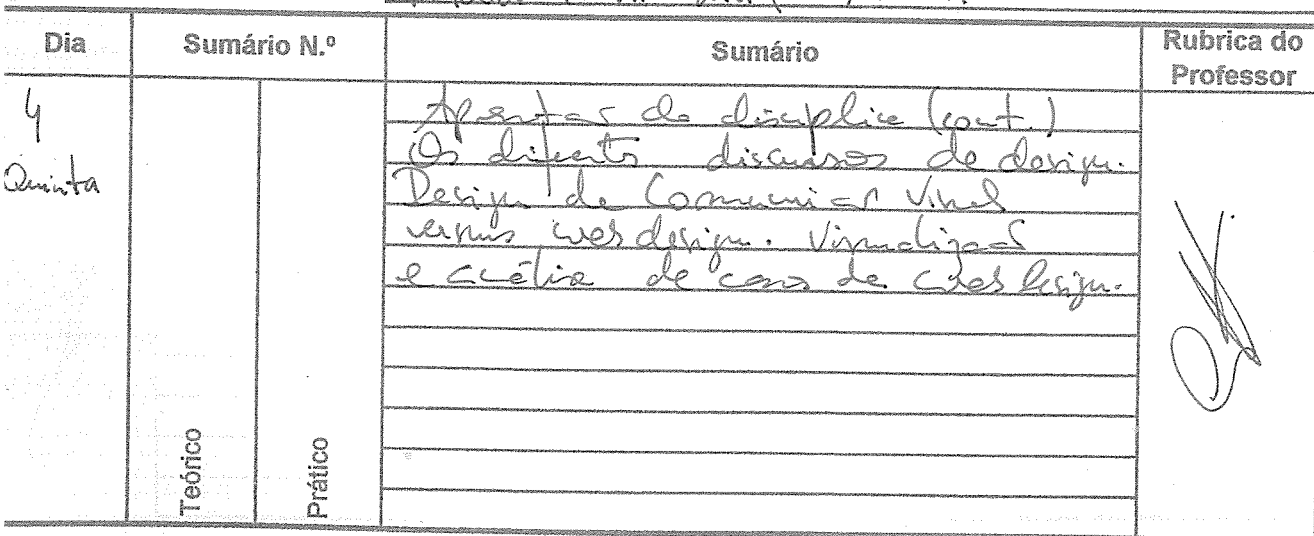 Dia
Sumário N.º
Sumário
Rubrica do
Professor
4
Quinta
Apresentação da disciplina (cont.)
Os diferentes discursos do design.
Design de Comunicação Visual
versus web design. Visualização
e análise de casos de web design.
Teórico
Prático